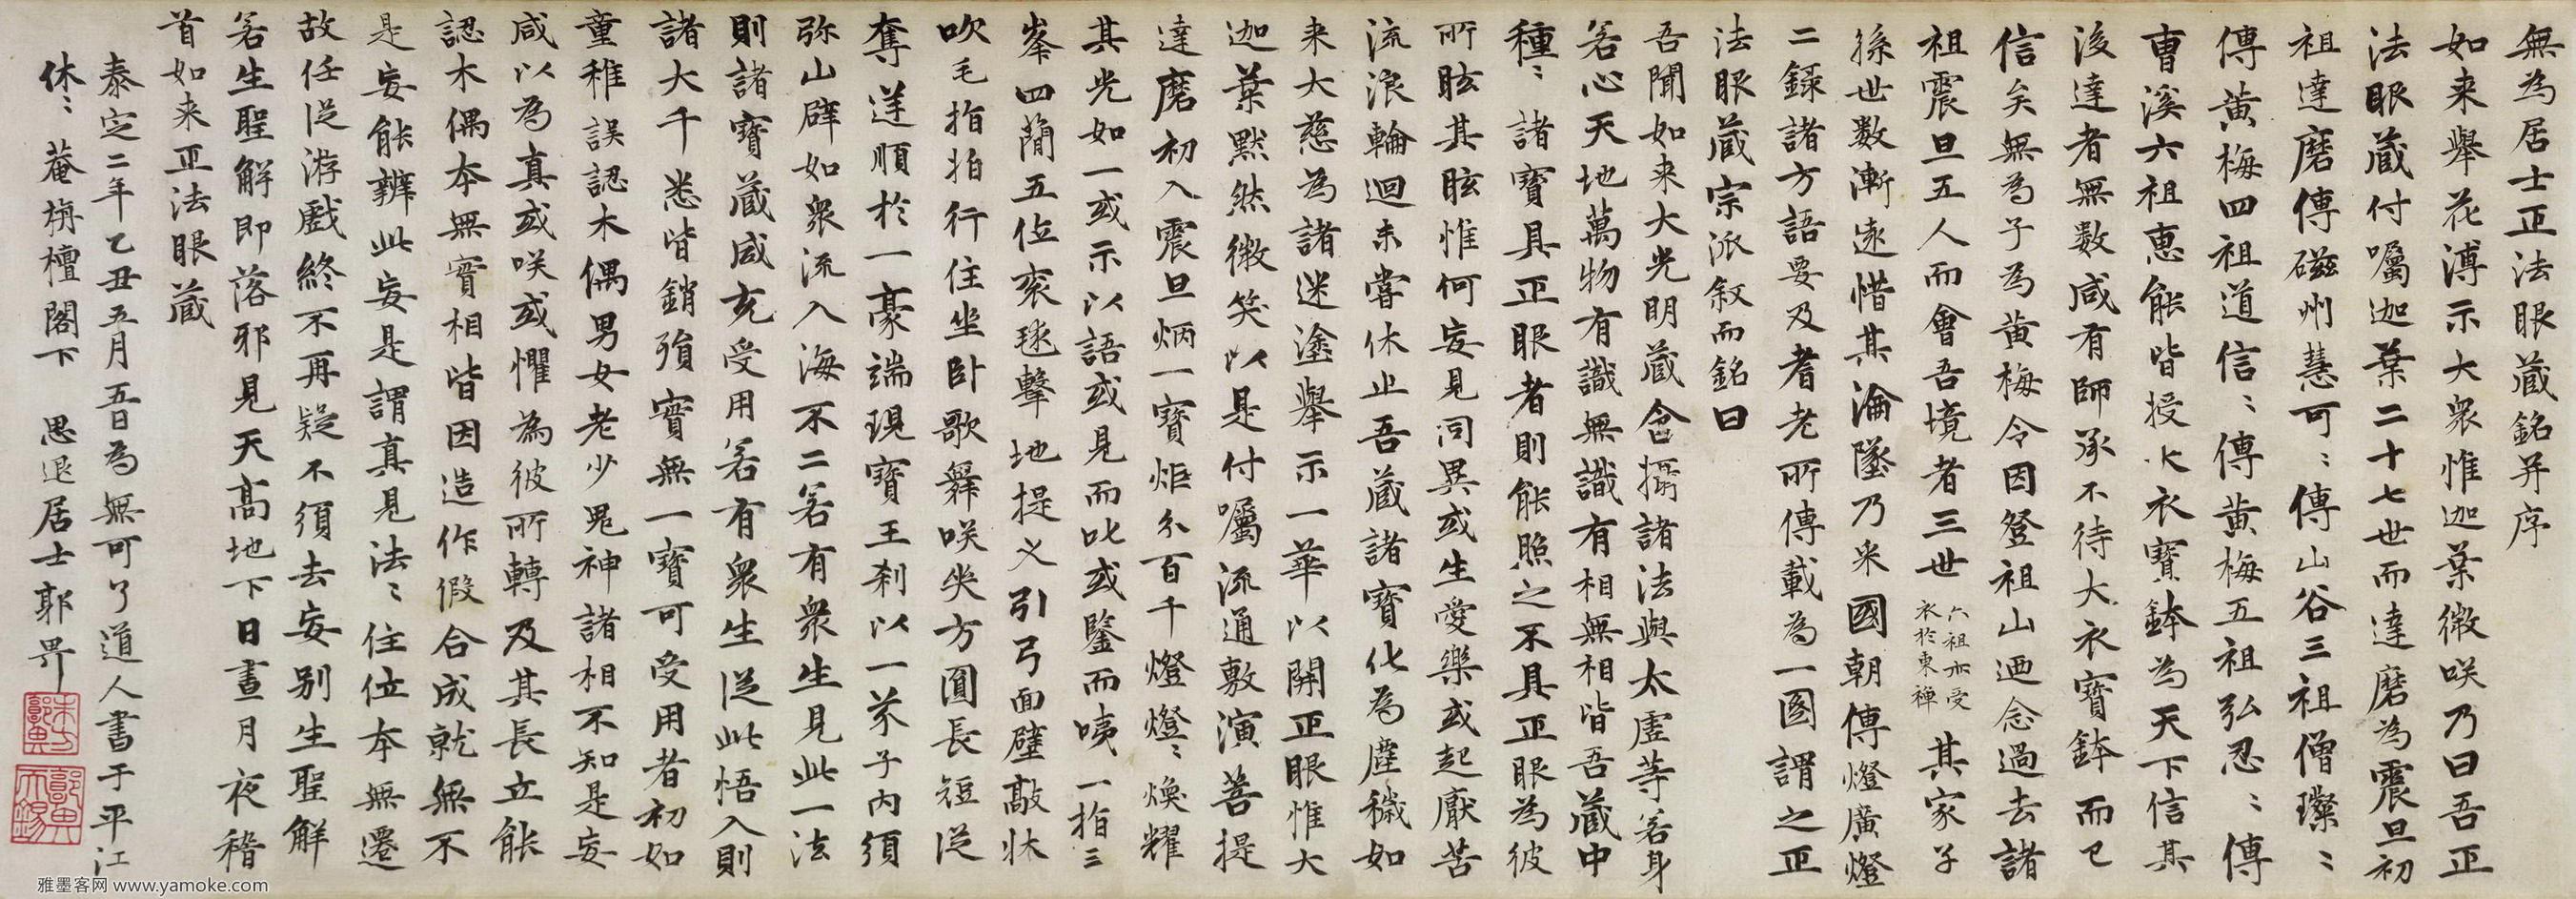 無為居士正法眼藏銘并序
如来舉花溥示大衆惟迦葉微咲乃曰吾正
法眼藏付囑迦葉二十七世而達磨為震旦初
祖達磨傳磁州慧可〻傳山谷三祖僧璨〻
傳黄梅四祖道信〻傳黄梅五祖弘忍〻傳
曺溪六祖惠能皆授大衣寶鉢為天下信其
後達者無数咸有師承不待大衣寶鉢而已
信矣無為子為黄梅令因登祖山迺念過去諸
祖震旦五人而會吾境者三世六祖亦受衣於東禅其家子
孫世数漸遠惜其淪墜乃采國朝傳燈廣燈
二録諸方語要及耆老所傳載為一圖謂之正
法眼藏宗派叙而銘曰
吾聞如来大光明藏含攝諸法與太虚等若身
若心天地萬物有識無識有相無相皆吾藏中
種〻諸寶具正眼者則能照之不具正眼為彼
所眩其眩惟何妄見同異或生愛樂或起厭苦
流浪輪迴未嘗休止吾藏諸寶化為塵穢如
来大慈為諸迷塗舉示一華以開正眼惟大
迦葉默然微笑以是付囑流通敷演菩提
達磨初入震旦炳一寶炬分百千燈燈〻煥耀
其光如一或示以語或見而叱或鑒而咦一指三
峯四蕳五位衮毬擊地提义引弓面壁敲牀
吹毛指拍行住坐卧歌舞咲哭方圓長短逆
奪逆順於一豪端現寶王刹以一芥子内須
弥山辟如衆流入海不二若有衆生見此一法
則諸寶藏咸充受用若有衆生逆此悟入則
諸大千悉皆銷殞實無一寶可受用者初如
童稚誤認木偶男女老少鬼神諸相不知是妄
咸以為真或咲或懼為彼所轉及其長立能
認木偶本無實相皆因造作假合成就無不
是妄能辨此妄是謂真見法〻住位本無遷
故任逆游戲終不再疑不須去妄别生聖解
若生聖解即落邪見天高地下日晝月夜稽
首如来正法眼藏
泰定二年乙丑五月五日為無可了道人書于平江
休〻菴旃檀閣下 思退居士郭畀
郭畀
雅墨客网 www.yamoke.com